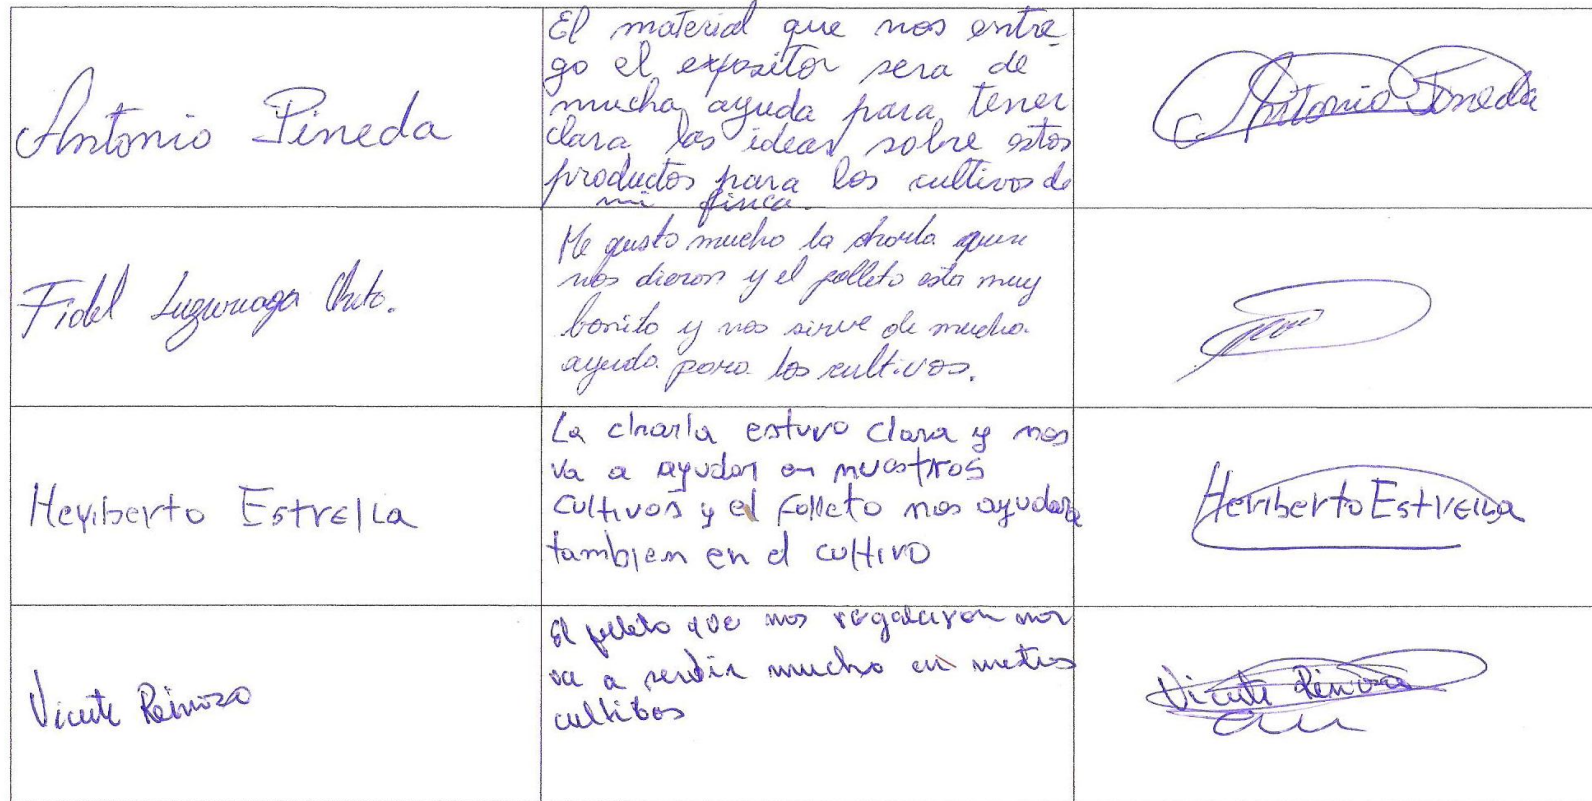 Antonio Pineda
El material que nos entre
go el expositor sera de
mucha ayuda para tener
clara las ideas sobre estos
productos para los cultivos de
mi finca.
Antonio Pineda
Fidel Luzuriaga
Me gusto mucho la charla que
nos dieron y el folleto esta muy
bonito y nos sirve de mucha
ayuda para los cultivos.
Heriberto Estrella
La charla estuvo clara y nos
va a ayudar en nuestros
cultivos y el folleto nos ayudara
tambien en el cultivo
Heriberto Estrella
Vicente Reinoso
El folleto que nos regalaron nos
va a serbir mucho en
cultibos
Vicente Reinoso